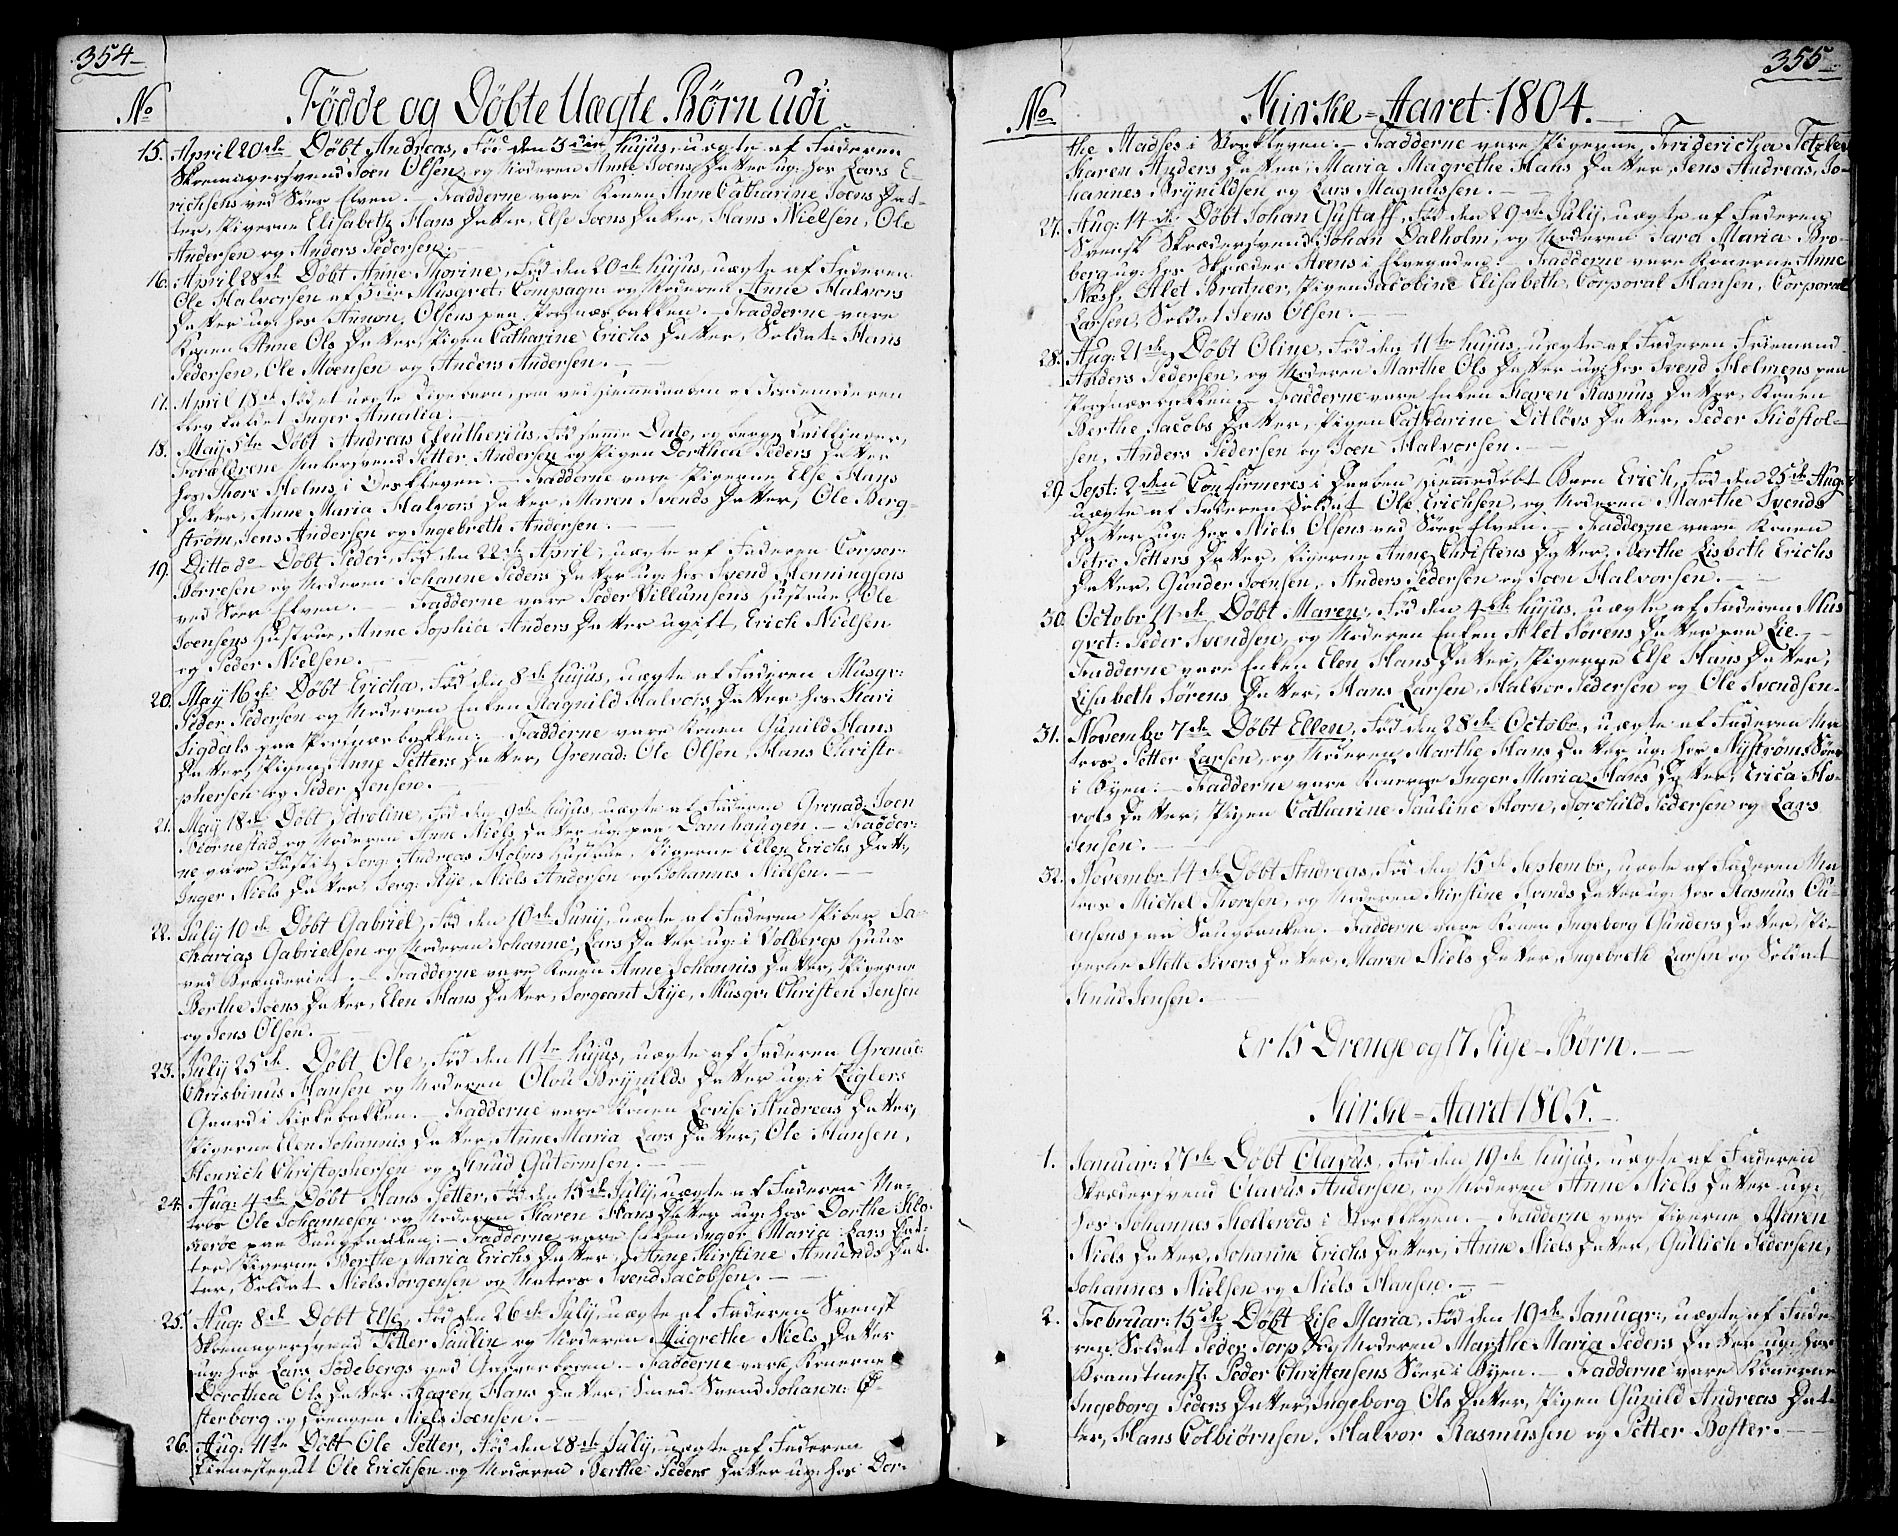 354.
No Fødde og Døbte Uægte Børn udi
15. April 20de Døbt Andreas, Fød den 3die hujus, uægte af Faderen
Skomagersvend Joen Olsen, og Moderen Anne Joens Datter ug: hos Lars E-
richsens ved Söer Elven. – Fadderne vare Konen Anne Catharine Joens Dat-
ter, Pigerne Elisabeth Hans Datter, Else Joens Datter, Hans Nielsen, Ole
Andersen og Anders Pedersen. –
16. April 28de Døbt Anne Thorine, Fød den 20de hujus, uægte af Faderen
Ole Halvorsen af Musqvet: Compagn: og Moderen Anne Halvors
Datter ug: hos Olsens paa Porsnæsbakken. – Fadderne vare
Konen Anne Ols Datter, Pigen Catharine Erichs Datter, Soldat Hans
Pedersen, Ole Moensen og Anders Andersen. –
17. April 18de Fød et uægte Pigebarn, som ved Hiemmedaaben af Jordemoderen
blev kaldet Inger Amalia.
18. May 5te Døbt Andreas Eleutherius, Fød samme Dato, og begge Tvillinger,
Forældrene Petter Andersen og Pigen Dorthea Peders Datter
hos Thore Holms i Oeskleven. – Fadderne vare Pigerne Else Hans
Datter, Anne Maria Halvors Datter, Maren Svends Datter, Ole Berg-
strøm, Jens Andersen og Ingebreth Andersen. –
19. Ditto do Døbt Peder, Fød den 22de April, uægte af Faderen Corpor:
Borresen og Moderen Johanne Peders Datter ug: hos Svend Henningsens
ved Söer Elven. – Fadderne vare Peder Villumsens Hustrue, Ole
Joensens Hustrue, Anne Sophia Anders Datter ugift, Erich Nielsen
og Peder Nielsen. –
20. May 16de Døbt Ericha, Fød den 8de hujus, uægte af Faderen Musqv:
Peder Pedersen og Moderen Enken Ragnild Halvors Datter hos Kari
Sigdals paa Porsnæsbakken. – Fadderne vare Konen Gunild Hans
Datter, Pigen Anne Petters Datter, Grenad: Ole Olsen, Hans Christo-
phersen og Peder Jensen. –
21. May 18de Døbt Petroline, Fød den 9de hujus, uægte af Faderen Grenad: Joen
Biørnestad, og Moderen Anne Niels Datter ug: paa Damhaugen. – Fadder-
ne vare Serg: Andreas Holms Hustrue, Pigerne Ellen Erichs Datt:,
Inger Niels Datter, Serg: Rye, Niels Andersen og Johannes Nielsen. –
22. July 10de Døbt Gabriel, Fød den 10de Juny, uægte af Faderen Piber Sa-
charias Gabrielsen og Moderen Johanne Lars Datter ug: i Volbergs Huus
ved Brænderiet. – Fadderne vare Konen Anne Johannis Datter, Pigerne
Berthe Joens Datter, Elen Hans Datter, Sergeant Rye, Musqv: Christen Jensen
og Jens Olsen. –
23. July 25de Døbt Ole, Fød den 11te hujus, uægte af Faderen Grenad:
Chrisbinus Hansen og Moderen Olou Brynilds Datter ug: i Ziglers
Gaard i Kirkebakken. – Fadderne vare Konen Lovise Andreas Datter,
Pigerne Elen Johannis Datter, Anne Maria Lars Datter, Ole Hansen,
Henrich Christophersen og Knud Gutormsen. –
24. Aug: 4de Døbt Hans Petter, Fød den 15de July, uægte af Faderen Ma-
tros Ole Johannesen og Moderen Karen Hans Datter ug: hos Dorthe
paa Saugbanken. – Fadderne vare Enken Inger Maria Lars Dat-
ter, Pigerne Berthe Maria Erichs Datter, Anne Kirstine Amunds Dat-
ter, Soldat Niels Jorgensen og Matros Svend Jacobsen. –
25. Aug: 8de Døbt Else, Fød den 26de July, uægte af Faderen Svensk
Skomagersvend Petter Paulin og Moderen Magrethe Niels Datter
ug: hos Lars Sodebergs ved . – Fadderne vare Konerne
Dorothea Ols Datter, Karen Hans Datter, Smed-Svend Johann: O-
sterborg og Drengen Niels Joensen. –
26. Aug: 11te Døbt Ole Petter, Fød den 28de July, uægte af Faderen
Ole Erichsen og Moderen Berthe Peders Datter ug: hos Dor-
355.
No Kirke-Aaret 1804. –
the Madses i Kloven. – Fadderne vare Pigerne Fridericha Tetzler
Karen Anders Datter, Maria Magrethe Hans Datter, Jens Andreas, Jo-
hannes Brynildsen og Lars Magnussen. –
27. Aug: 14de Døbt Johan Gustaff, Fød den 29de July, uægte af Faderen
Svensk Skrædersvend Johan Dalholm, og Moderen Sara Maria Bro-
berg ug: hos Skræder Steens i Elvegaden. – Fadderne vare Konerne Anne
Næss, Alet Bratner, Pigen Jacobine Elisabeth, Corporal Hansen, Corporal
Larsen, Soldat Jens Olsen. –
28. Aug: 21de Døbt Oline, Fød den 11te hujus, uægte af Faderen Friemand
Anders Pedersen, og Moderen Marthe Ols Datter ug: hos Svend Holmens paa
Porsnæsbakken. – Fadderne vare Enken Karen Rasmus Datter, Konen
Berthe Jacobs Datter, Pigen Catharine Ditlövs Datter, Peder Kiøstol-
sen, Anders Pedersen og Joen Halvorsen. –
29. Sept: 2den Confirmeres i Daaben hiemmedøbt Barn Erich, Fød den 25de Aug:
uægte af Faderen Soldat Ole Erichsen, og Moderen Marthe Svends
Datter ug: hos Niels Olsens ved Söer Elven. – Fadderne vare Konen
Petre Petters Datter, Pigerne Anne Christens Datter, Berthe Lisbeth Erichs
Datter, Gunder Joensen, Anders Pedersen og Joen Halvorsen. –
30. Octobr 11de Døbt Maren, Fød den 4de hujus, uægte af Faderen Mus
qvet: Peder Svendsen, og Moderen Enken Alet Sørens Datter paa Lie. –
Fadderne vare Enken Elen Hans Datter, Pigerne Else Hans Datter,
Lisabeth Sørens Datter, Hans Larsen, Halvor Pedersen og Ole Svendsen.
31. Novembr 7de Døbt Ellen, Fød den 28de Octobr, uægte af Faderen Ma-
tros Petter Larsen, og Moderen Marthe Hans Datter ug: hos Nyströms Sör
i Byen. – Fadderne vare Konerne Inger Maria Hans Datter, Erica Ha-
vols Datter, Pigen Catharine Pauline Horn, Torchild Pedersen og Lars
Jensen. –
32. Novembr 14de Døbt Andreas, Fød den 15de Septembr, uægte af Faderen Ma-
tros Michel Thoresen, og Moderen Kirstine Svends Datter ug: hos Rasmus Ou-
ensens paa Saugbanken. – Fadderne vare Konen Ingeborg Gunders Datter, Pi-
gerne Mette Sivers Datter, Maren Niels Datter, Ingebreth Larsen og Soldat
Knud Jensen. –
Er 15 Drenge og 17 Pige-Børn. –
Kirke-Aaret 1805. –
1. Januar: 27de Døbt Olavus, Fød den 19de hujus, uægte af Faderen
Skrædersvend Olavus Andersen, og Moderen Anne Niels Datter ug:
hos Johannes Holleröds i Kloven. – Fadderne vare Pigerne Maren
Niels Datter, Johanne Erichs Datter, Anne Niels Datter, Gullich Pedersen,
Johannes Nielsen og Niels Hansen. –
2. Februar: 15de Døbt Lise Maria, Fød den 19de Januar:, uægte af Fade-
ren Soldat Peder Torp og Moderen Marthe Maria Peders Datter ug: hos
Brandtmest: Peder Christensens Söer i Byen. – Fadderne vare Konerne
Ingeborg Peders Datter, Ingeborg Ols Datter, Pigen Gunild Andreas Dat-
ter, Hans Colbiørnsen, Halvor Rasmussen og Petter Boster. –